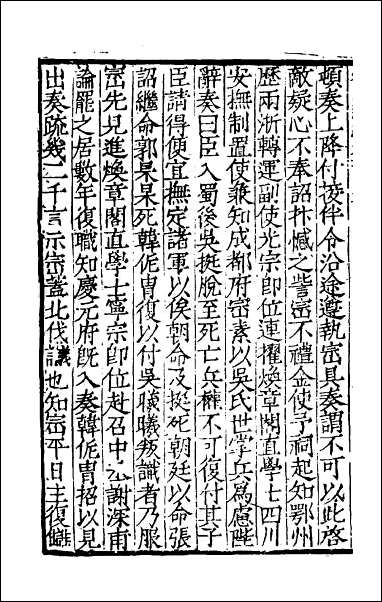 頓奏上降付接伴令沿途遵執崈具奏謂不可以此啓
敵疑心不奉詔抃憾之訾崈不禮金使予祠起知鄂州
歷兩淅轉運副使光宗即位連擢煥章閣直學士四川
安撫制置使兼知成都府崈素以吳氏世掌兵爲慮陛
辭奏曰臣入蜀後吳挺脫至死亡兵權不可復付其子
臣請得便宜撫定諸軍以俟朝命及挺死朝廷以命張
詔繼命郭杲杲死韓侂冑復以付吳曦曦叛識者乃服
崈先見進煥章閣直學士寧宗即位赴召中丞謝深甫
論罷之居數年復職知慶元府旣入奏韓侂冑招以見
出奏疏幾二千言示崈蓋北伐議也知崈平日主復讎